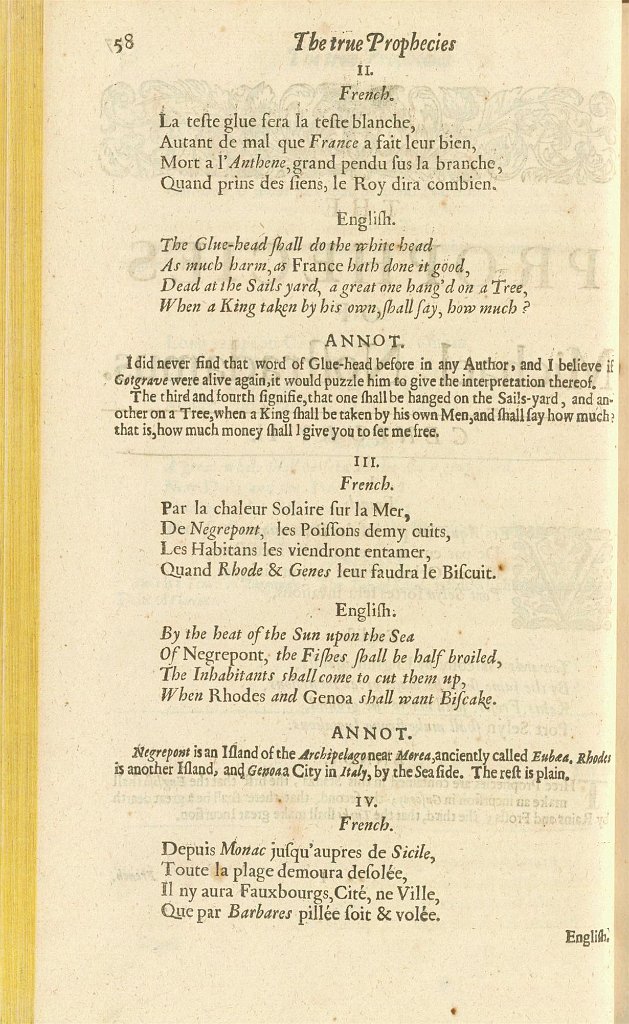 58 The true Prophecies
II.
French.
La teſte glue ſera la teſte blanche,
Autant de mal que France a fait leur bien,
Mort a l'Anthene, grand pendu ſus la branche,
Quand prins des ſiens, le Roy dira combien.
Engliſh.
The Glue-head ſhall do the white head
As much harm, as France hath done it good,
Dead at the Sails yard, a great one hang'd on a Tree,
When a King taken by his own, ſhall ſay, how much?
ANNOT.
I did never find that word of Glue-head before in any Author, and I believe if
Cotgrave were alive again, it would puzzle him to give the interpretation thereof.
The third and fourth ſignifie, that one ſhall be hanged on the Sails-yard, and an-
other on a Tree, when a King ſhall be taken by his own Men, and ſhall ſay how much?
that is, how much money ſhall I give you to ſet me free.
III.
French.
Par la chaleur Solaire ſur la Mer,
De Negrepont, les Poiſſons demy cuits,
Les Habitans les viendront entamer,
Quand Rhode & Genes leur faudra le Biſcuit.
Engliſh.
By the heat of the Sun upon the Sea
Of Negrepont, the Fiſhes ſhall be half broiled,
The Inhabitants ſhall come to cut them up,
When Rhodes and Genoa ſhall want Biſcake.
ANNOT.
Negrepont is an Iſland of the Archipelago near Morea, anciently called Eubæa. Rhodes
is another Iſland, and Genoa a City in Italy, by the Sea ſide. The reſt is plain.
IV.
French.
Depuis Monac juſqu'aupres de Sicile,
Toute la plage demoura deſolée,
Il ny aura Fauxbourgs, Cité, ne Ville,
Que par Barbares pillée ſoit & volée.
Engliſh.